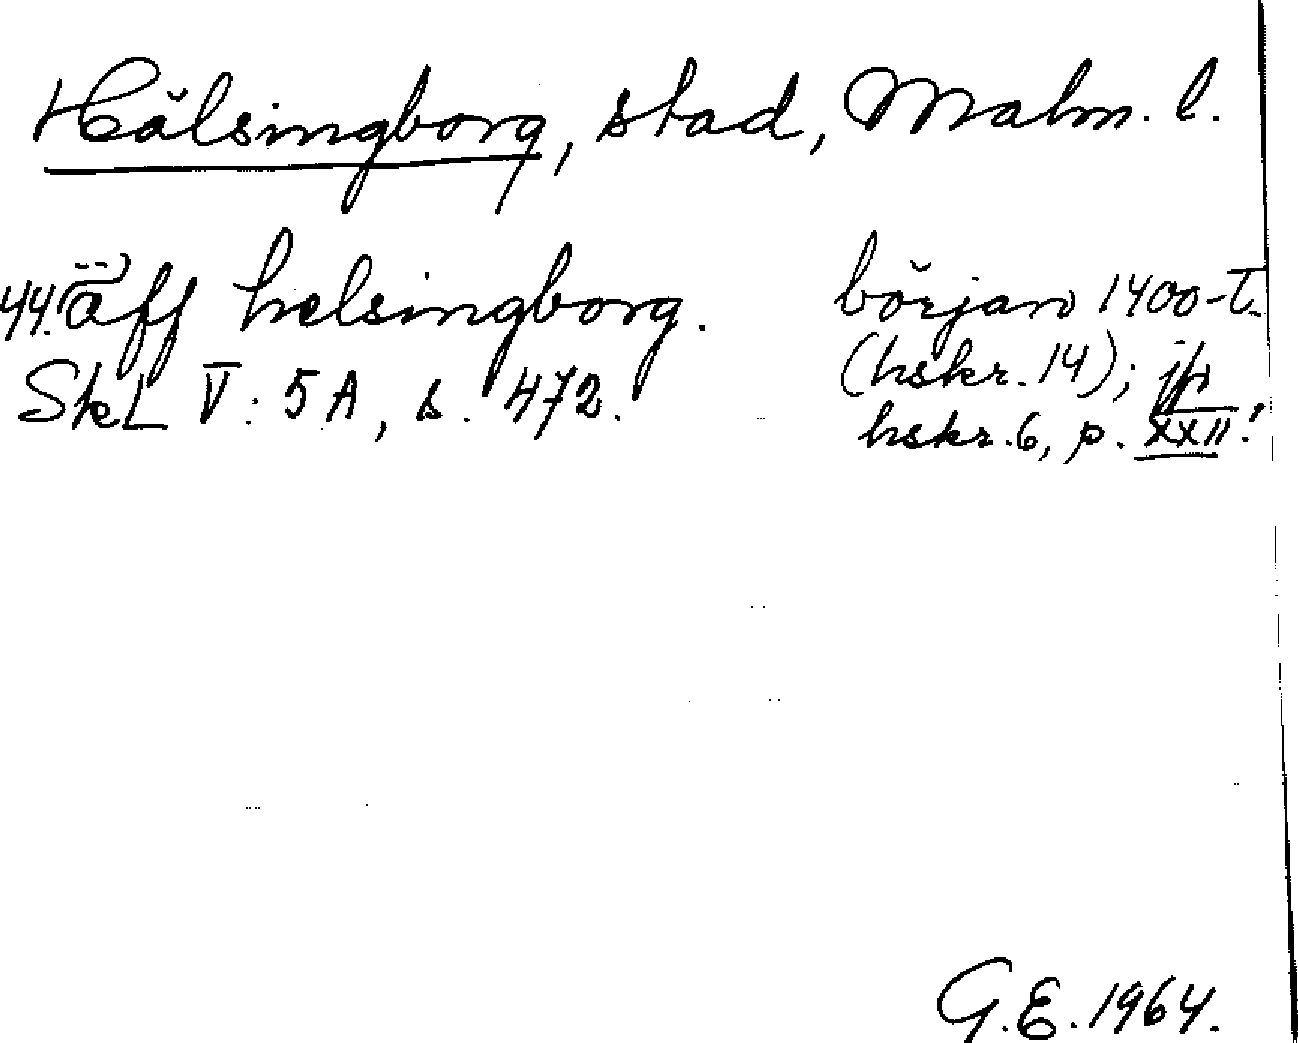 Hälsingborg, stad, Malm. l.
44. äff helsingborg. början 1400-t.
Skl V: 5A, s. 472. (hskr. 14); jfr
hskr. 6, p. XXII!
G.E. 1964.